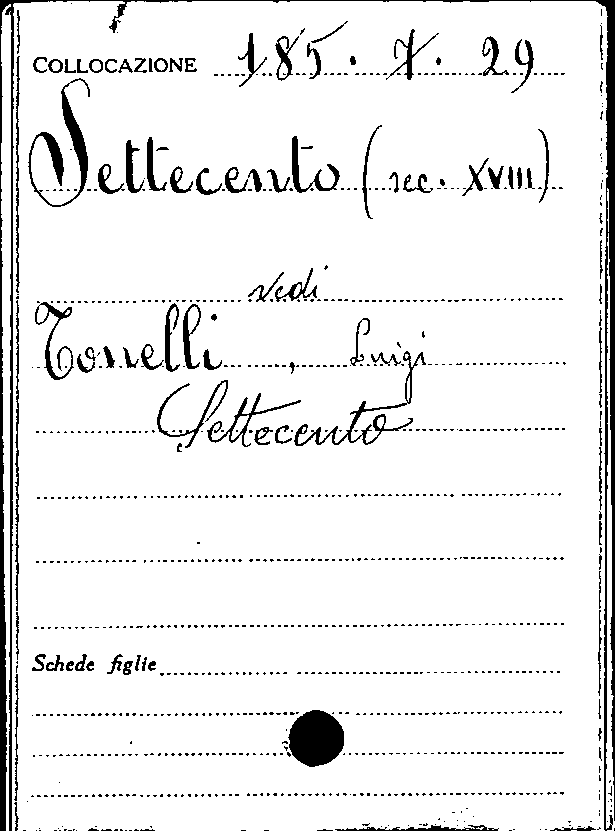 COLLOCAZIONE 185. 7. 29
Settecento (sec. XVIII)
vedi
Tonelli, Luigi
Settecento
Schede figlie